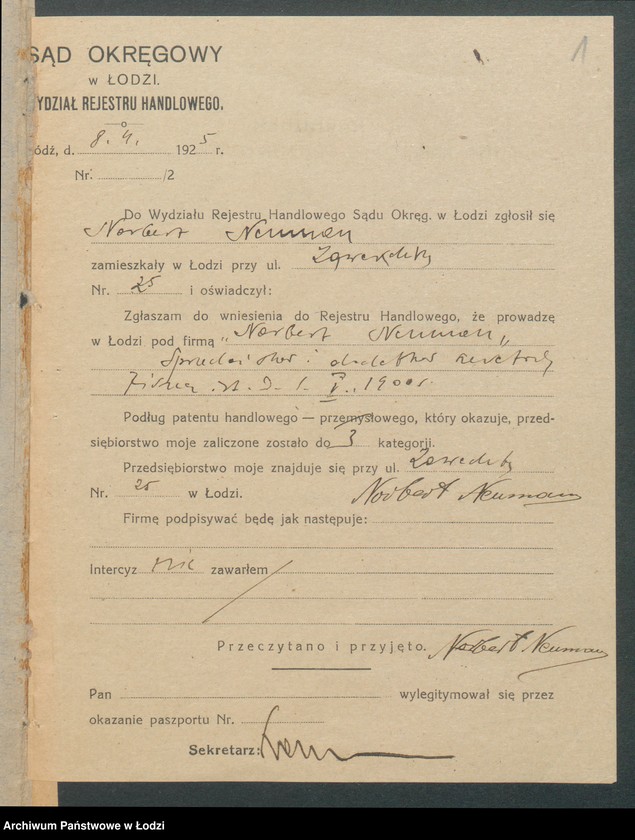 1
SĄD OKRĘGOWY
w ŁODZI.
YDZIAŁ REJESTRU HANDLOWEGO.
ódź, d. 8. 4. 1925 r.
Nr. /2
Do Wydziału Rejestru Handlowego Sądu Okręg. w Łodzi zgłosił się
Norbert Neuman
zamieszkały w Łodzi przy ul.
Nr. 25 i oświadczył:
Zgłaszam do wniesienia do Rejestru Handlowego, że prowadzę
w Łodzi pod firmą "Norbert Neuman"
i
1900 r.
Podług patentu handlowego — przemysłowego, który okazuje, przed-
siębiorstwo moje zaliczone zostało do 3 kategorji.
Przedsiębiorstwo moje znajduje się przy ul.
Nr. 25 w Łodzi. Norbert Neuman
Firmę podpisywać będę jak następuje:
Intercyz nie zawarłem
Przeczytano i przyjęto. Norbert Neuman
Pan wylegitymował się przez
okazanie paszportu Nr.
Sekretarz:
Archiwum Państwowe w Łodzi